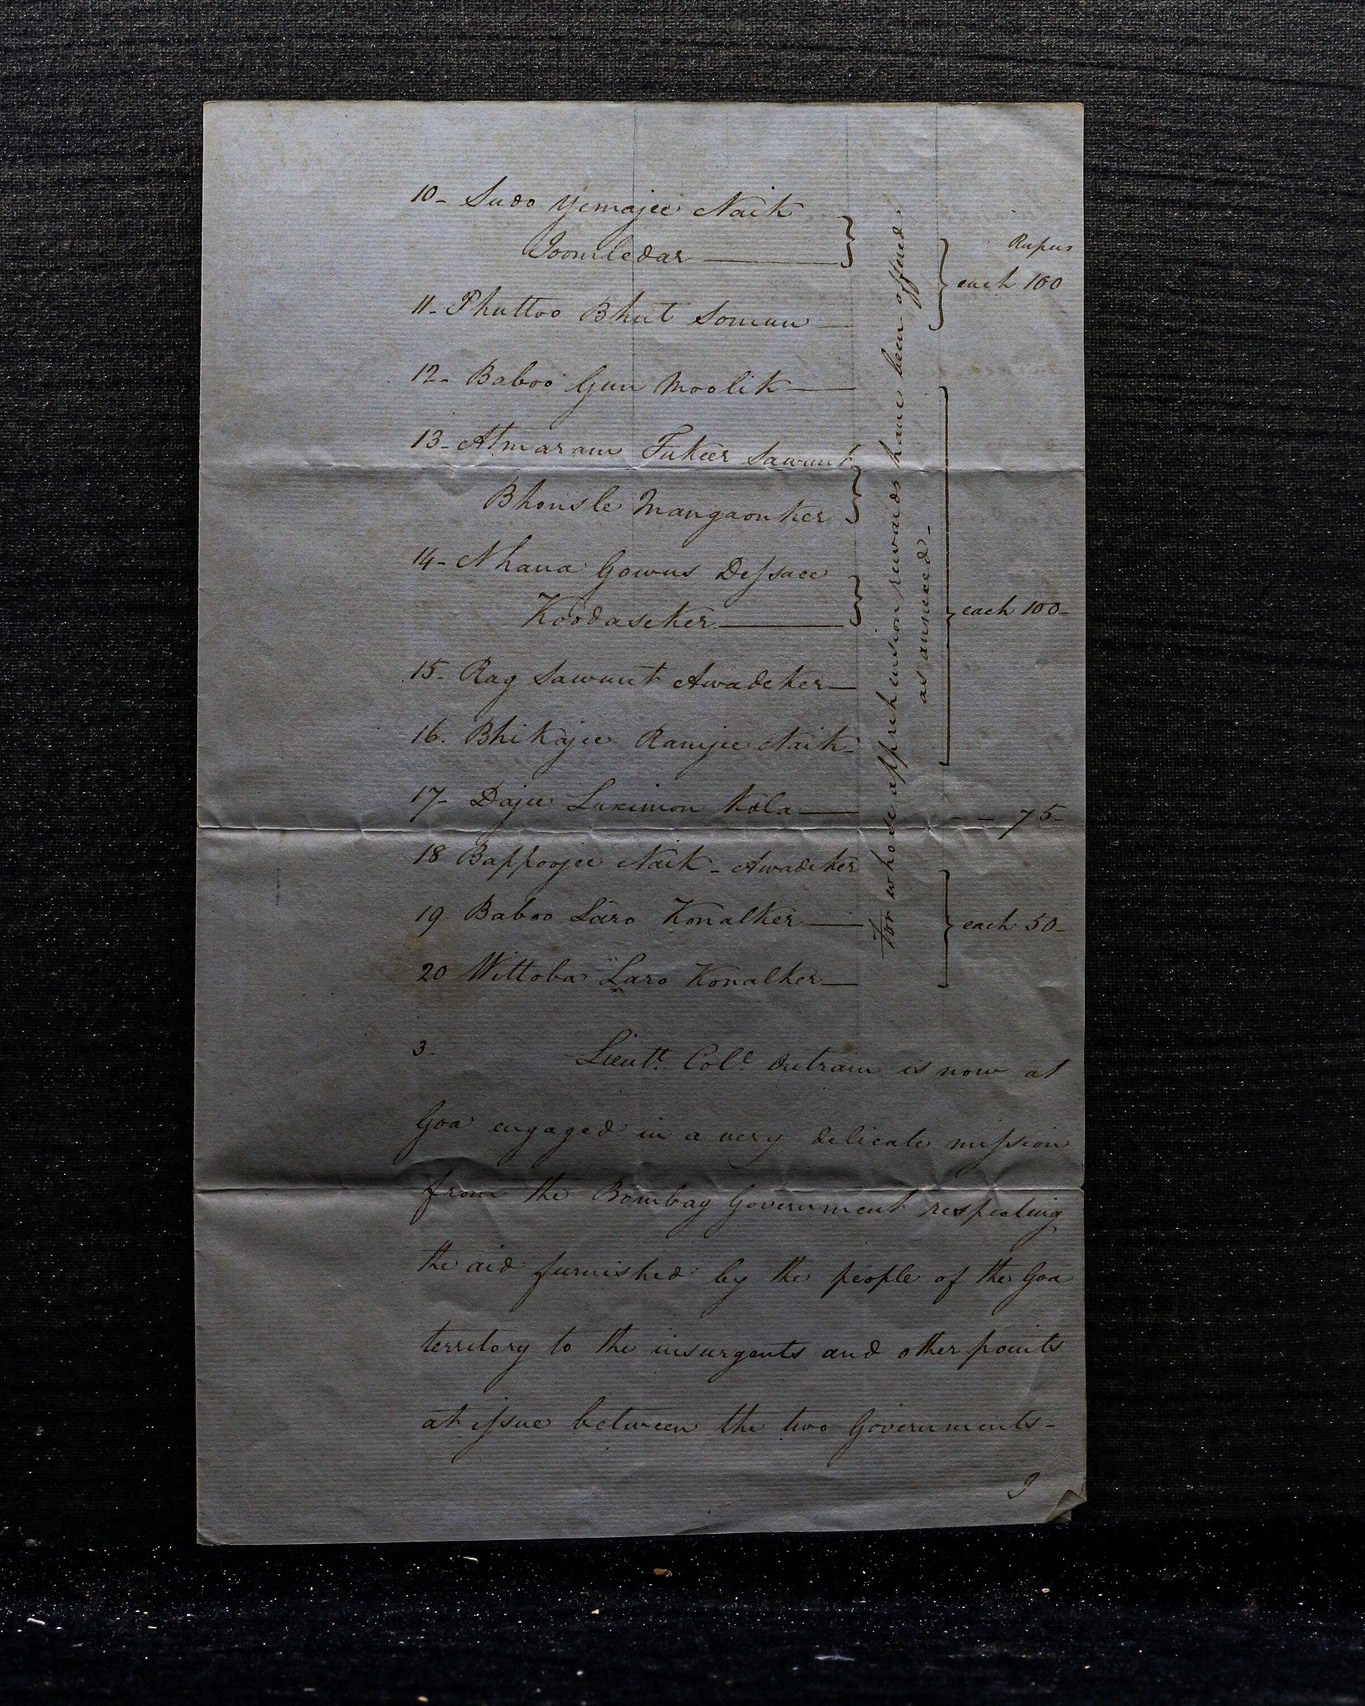 10- Sudo Yemajee Naik
Joomledar
Rupees
each 100
11- Phuttoo Bhut Somun
12- Baboo Gun Moolik
13- Atmaram Fukeer Sawunt
Bhonsle Mangaonker
14- Nhana Gowus Dessaee
Koodaseker
each 100
15- Rag Sawunt Awadeker
16. Bhikajee Ramjee Naik
17- Dajee Luximon Kola
75
18 Bappoojee Naik - Awadeker
19 Baboo Laro Konalker
each 50
20 Wittoba Laro Konalker
For whose apprehension rewards have been offered
as annexed-
3- Lieutt. Coll. Outram is now at
Goa engaged in a very delicate mission
from the Bombay Government respecting
the aid furnished by the people of the Goa
territory to the insurgents and other points
at issue between the two Governments-